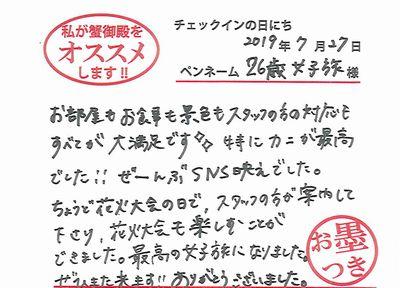 私が蟹御殿を
オススメ
します!!
チェックインの日にち
2019年7月27日
ペンネーム 26歳女子旅 様
お部屋もお食事も景色もスタッフの方の対応も
すべてが大満足です✨ 特にカニが最高
でした!! ぜーんぶSNS映えでした。
ちょうど花火大会の日で、スタッフの方が案内して
下さり、花火大会も楽しむことが
できました。最高の女子旅になりました。
ぜひまた来ます!! ありがとうございました。
お墨
つき